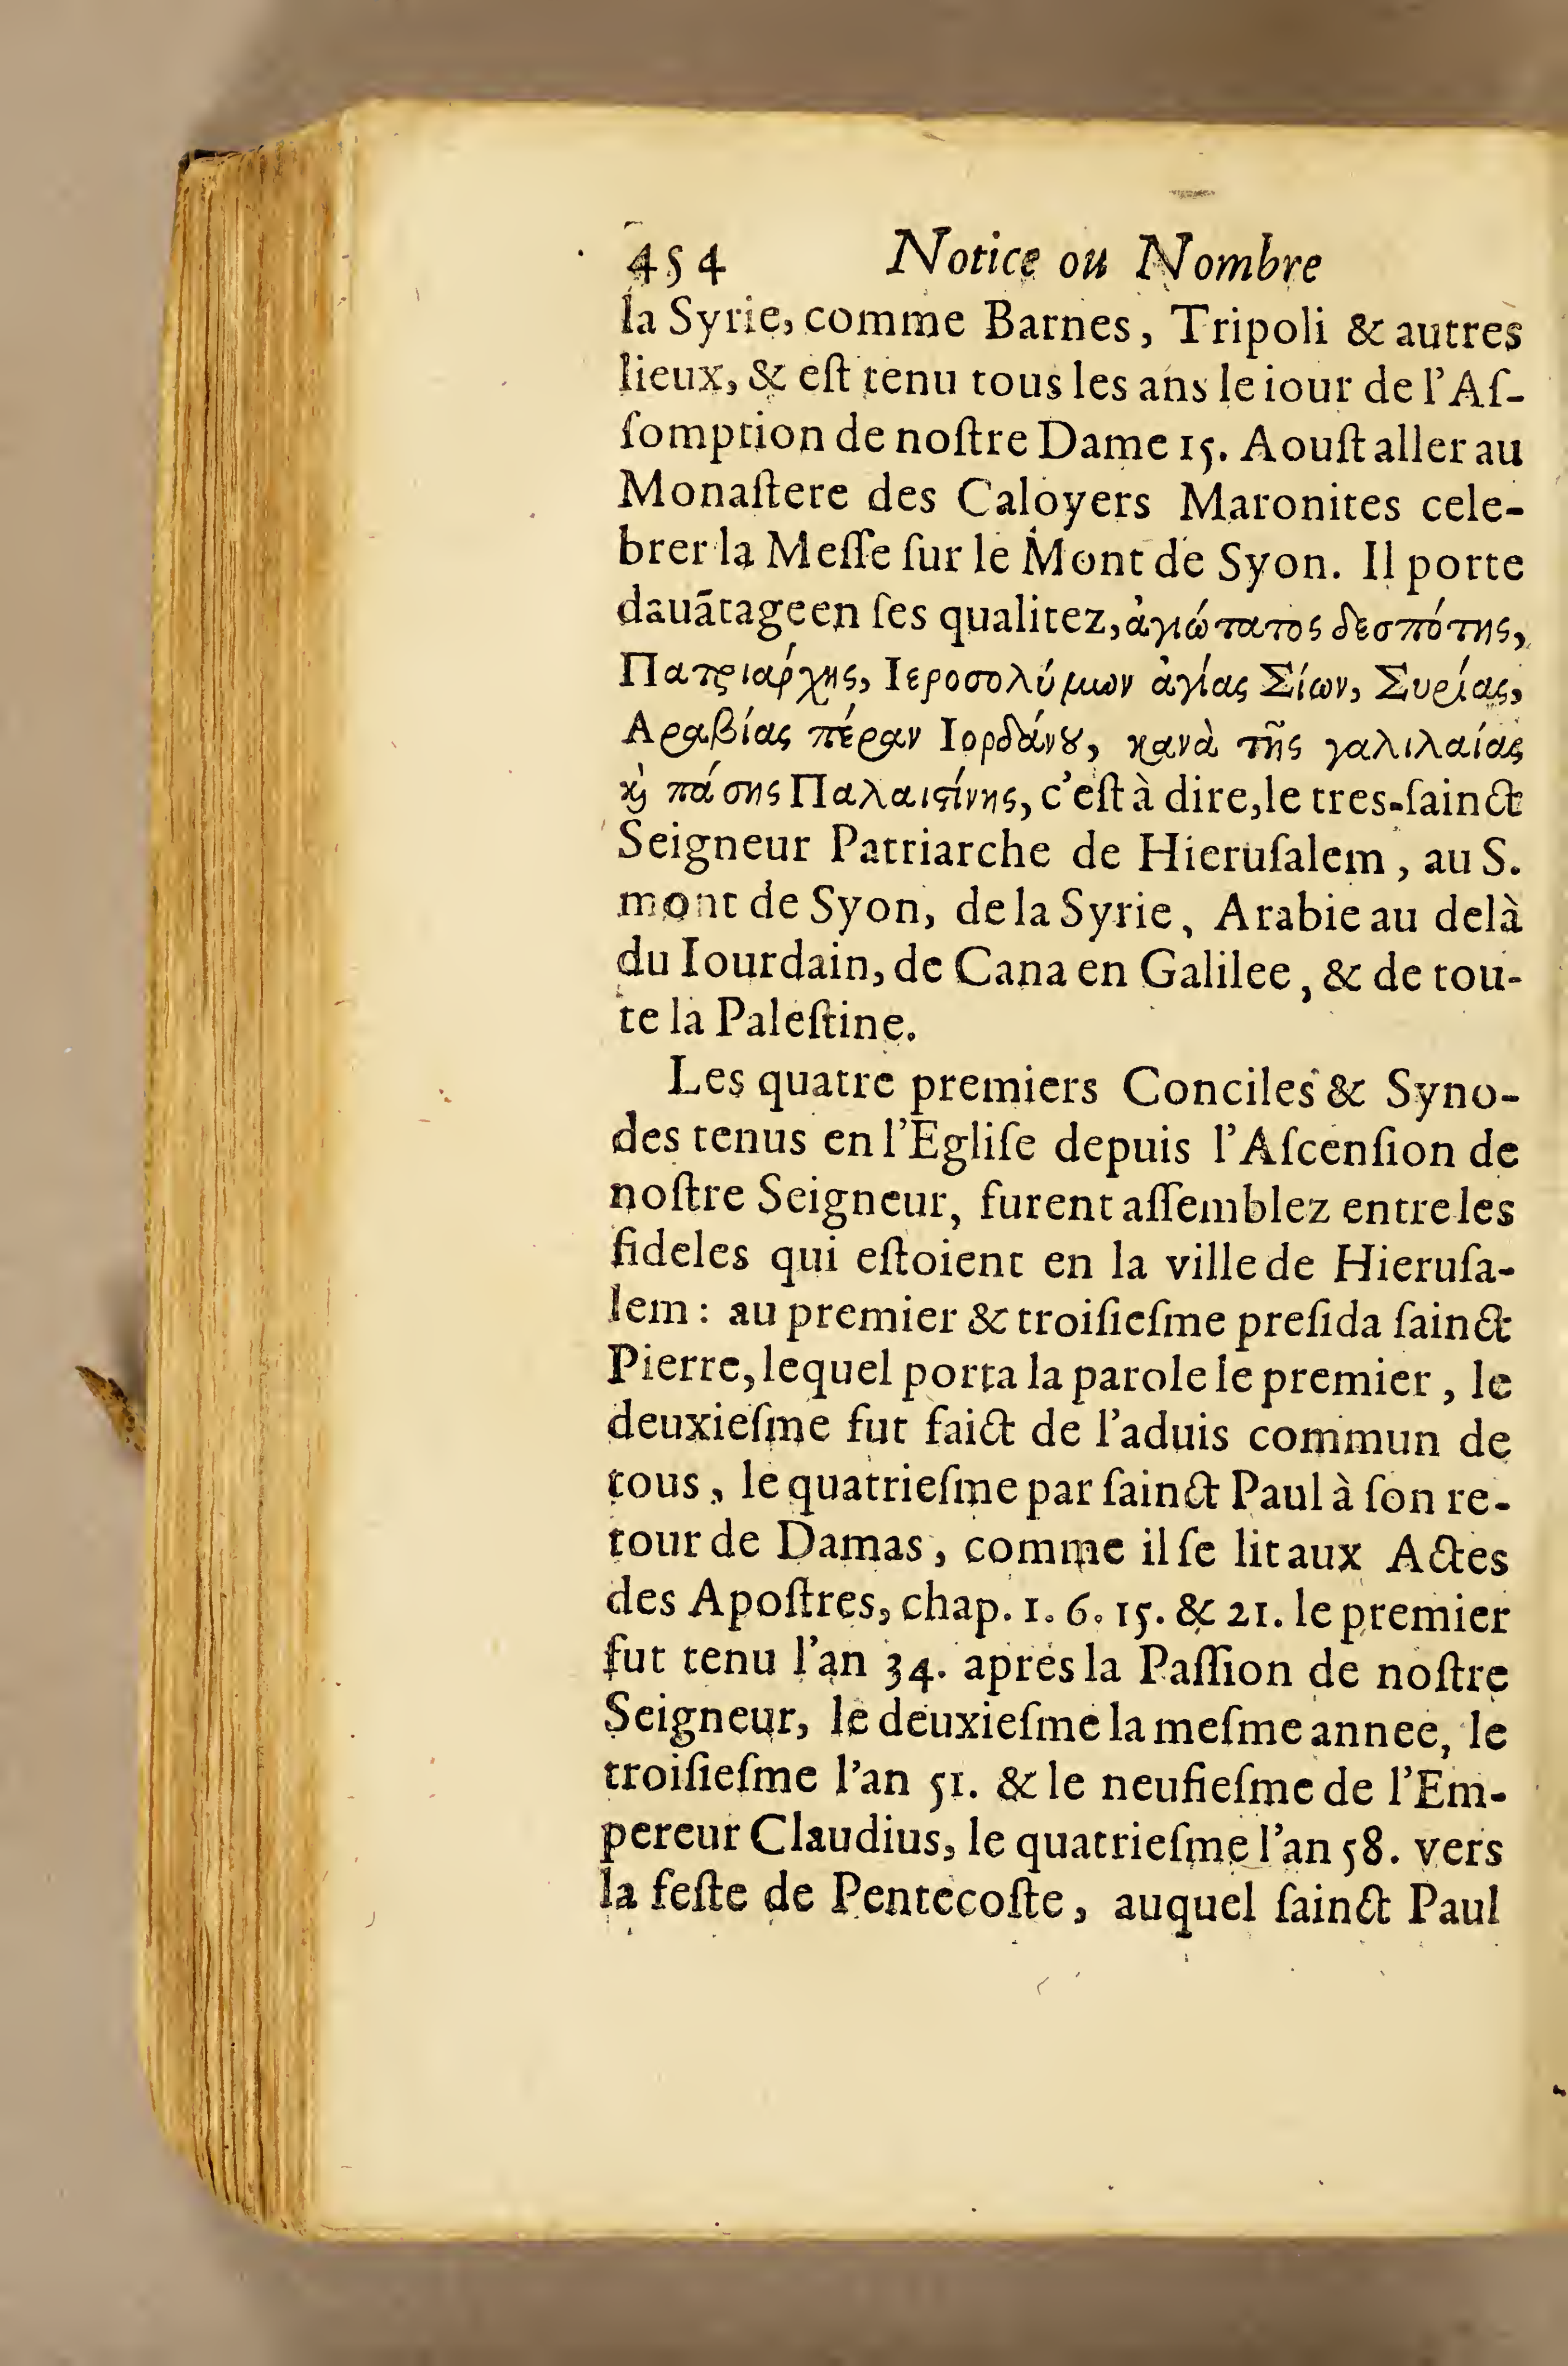 454 Notice ou Nombre
la Syrie, comme Barnes, Tripoli & autres
lieux, & eſt tenu tous les ans le iour de l'Aſ-
ſomption de noſtre Dame 15. Aouſt aller au
Monaſtere des Caloyers Maronites cele-
brer la Meſſe ſur le Mont de Syon. Il porte
dauātage en ſes qualitez, ἁγιώτατος δεσπότης,
Πατριάρχης, Ιεροσολύμων ἁγίας Σίων, Συρίας,
Αραβίας πέραν Ιορδάνȣ, κανὰ τῆς γαλιλαίας
ϗ̀ πάσης Παλαιϛίνης, c'eſt à dire, le tres-ſainct
Seigneur Patriarche de Hieruſalem, au S.
mont de Syon, de la Syrie, Arabie au delà
du Iourdain, de Cana en Galilee, & de tou-
te la Paleſtine.
Les quatre premiers Conciles & Syno-
des tenus en l'Egliſe depuis l'Aſcenſion de
noſtre Seigneur, furent aſſemblez entre les
fideles qui eſtoient en la ville de Hieruſa-
lem : au premier & troiſieſme preſida ſainct
Pierre, lequel porta la parole le premier, le
deuxieſme fut faict de l'aduis commun de
tous, le quatrieſme par ſainct Paul à ſon re-
tour de Damas, comme il ſe lit aux Actes
des Apoſtres, chap. 1. 6. 15. & 21. le premier
fut tenu l'an 34. apres la Paſſion de noſtre
Seigneur, le deuxieſme la meſme annee, le
troiſieſme l'an 51. & le neufieſme de l'Em-
pereur Claudius, le quatrieſme l'an 58. vers
la feſte de Pentecoſte, auquel ſainct Paul